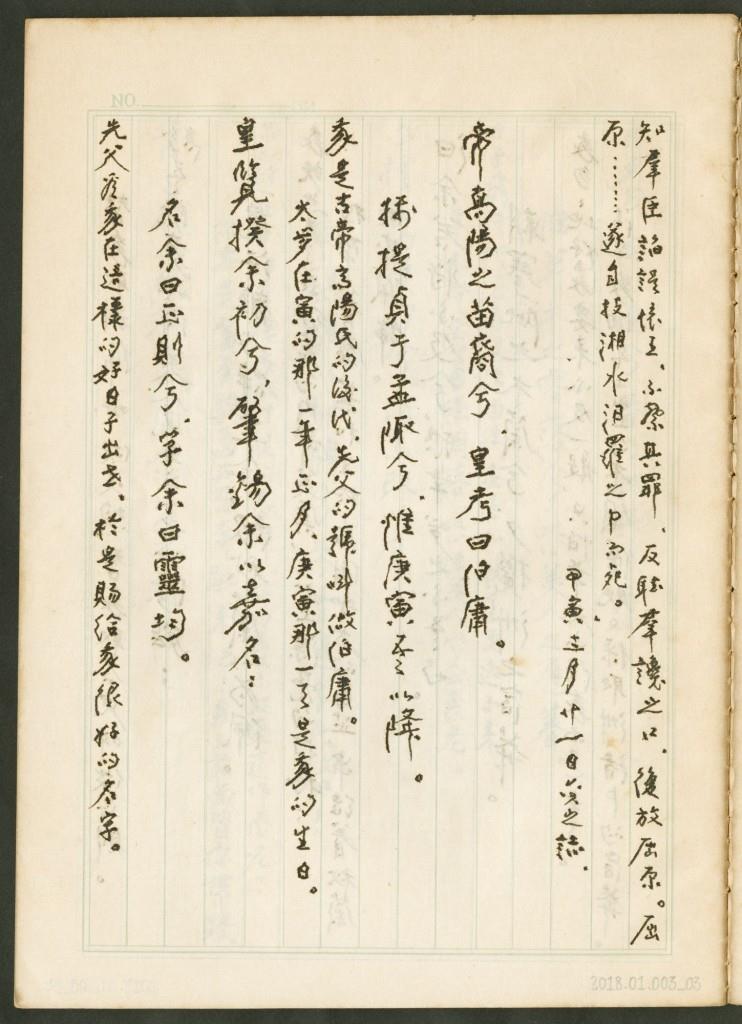 知羣臣諂誤懷王、不察其罪、反聽羣讒之口、復放屈原。屈
原……遂自投湘水汨羅之中而死。
甲寅 月廿一日 之誌.
帝高陽之苗裔兮 皇考曰伯庸。
攝提貞于孟陬兮、惟庚寅吾以降。
我是古帝高陽氏的後代、先父的號叫做伯庸。
太歲在寅的那一年正月、庚寅那一天是我的生日。
皇覽揆余初兮、肇錫余以嘉名：
名余曰正則兮、字余曰靈均。
先父爲我在這樣的好日子出世、於是賜給我很好的名字。
NO
2018.01.003_03